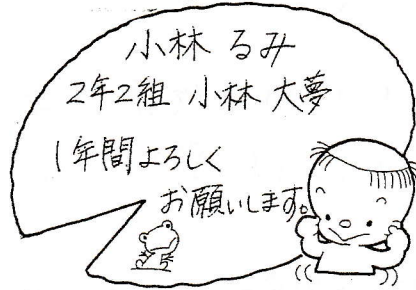 小林 るみ
2年2組 小林 大夢
1年間よろしく
お願いします。